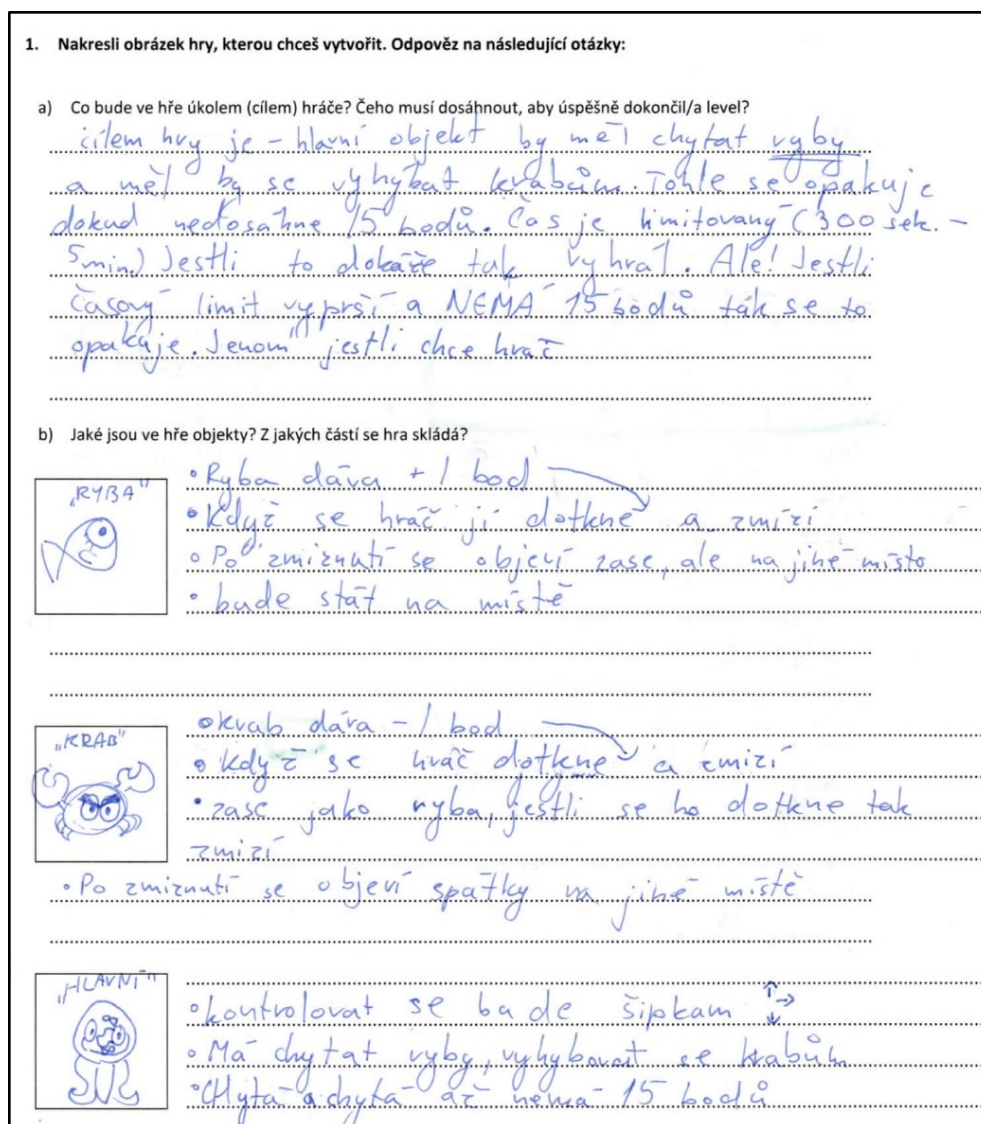 1. Nakresli obrázek hry, kterou chceš vytvořit. Odpověz na následující otázky:
a) Co bude ve hře úkolem (cílem) hráče? Čeho musí dosáhnout, aby úspěšně dokončil/a level?
cílem hry je – hlavní objekt by měl chytat ryby
a měl by se vyhýbat krabům. Tohle se opakuje
dokud nedosáhne 15 bodů. Čas je limitovaný (300 sek. –
5min.) Jestli to dokáže tak vyhrál. Ale! Jestli
časový limit vyprší a NEMÁ 15 bodů ták se to
opakuje. Jenom jestli chce hráč
b) Jaké jsou ve hře objekty? Z jakých částí se hra skládá?
„RYBA"
• Ryba dáva + 1 bod
• Když se hráč jí dotkne a zmizí
• Po zmiznutí se objeví zase, ale na jiné místo
• bude stát na místě
„KRAB"
• krab dáva – 1 bod
• když se hráč dotkne a zmizí
• zase jako ryba, jestli se ho dotkne tak
zmizí
• Po zmiznutí se objeví spátky na jiné místě
„HLAVNÍ"
• kontrolovat se bude šipkam ↑ → ↓
• Má chytat ryby, vyhybovat se krabům
• Chytá a chytá až nemá 15 bodů